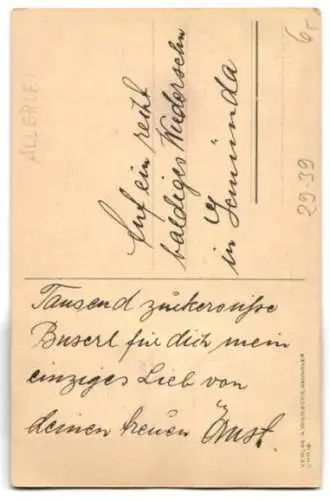 Auf ein recht
baldiges Wiedersehn
in Gemünda
Tausend zuckersüsse
Buserl für dich mein
einziges Lieb von
deinen treuen Ernst.
ALLERLEI
29-39
6,-
VERLAG